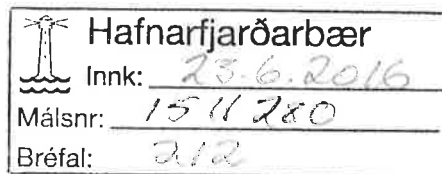 Hafnarfjarðarbær
Innk: 23.6.2016
Málsnr: 1511280
Bréfal: 212